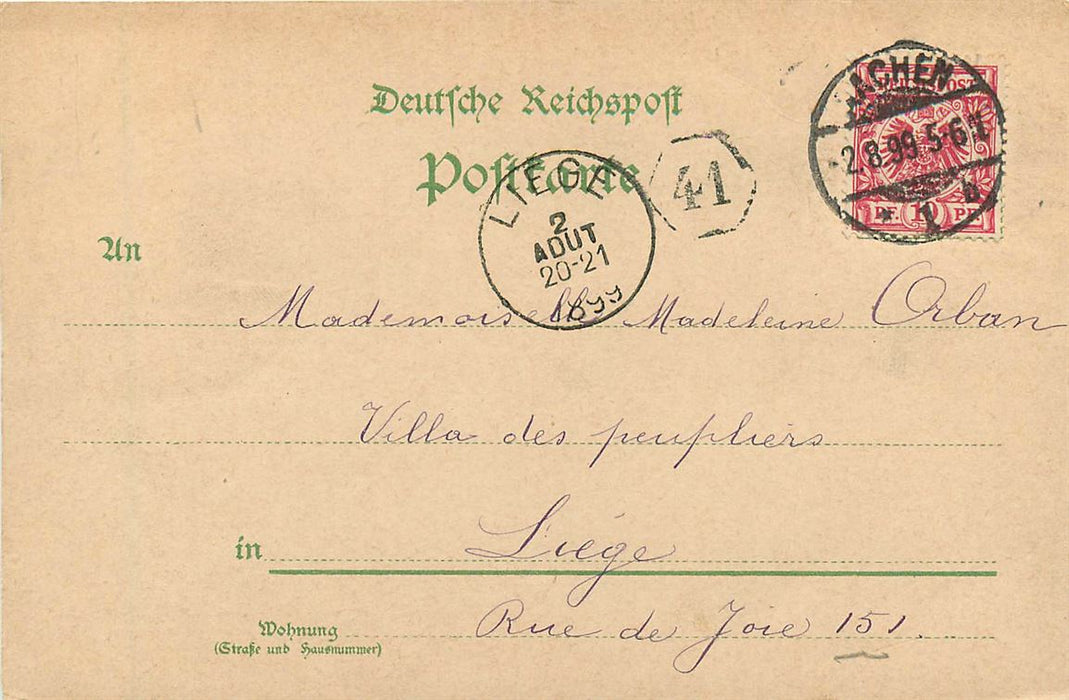 Deutsche Reichspost
Postkarte
AACHEN
2.8.99.5-6N
* 1 b
REICHSPOST
PF. 10 PF
LIEGE
2
AOUT
20-21
1899
41
An
Mademoiselle Madeleine Orban
Villa des peupliers
in Liége
Wohnung
(Straße und Hausnummer)
Rue de Joie 151.